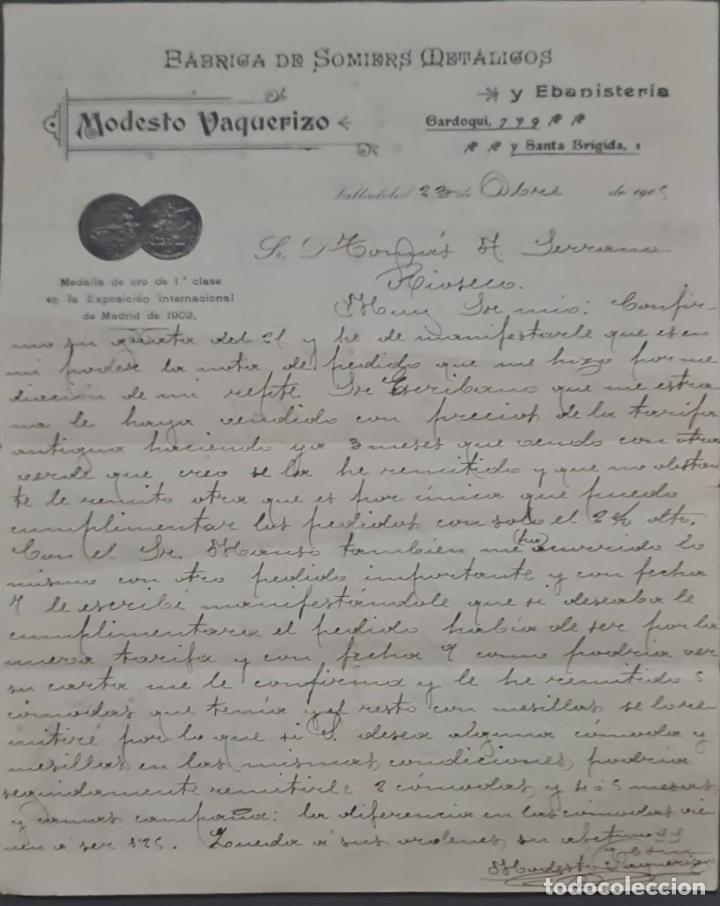 FÁBRICA DE SOMIERS METÁLICOS
y Ebanistería
Modesto Vaquerizo
Gardoqui, 7 y 9
y Santa Brígida, 1
Valladolid 23 de Obre de 190
Sr. D. Tomás A. Serrano
Rioseco.
Medalla de oro de 1.ª clase
en la Exposición Internacional
de Madrid de 1902.
Muy Sr mio: Confir-
mo su grata del 21 y he de manifestarle que es en
mi poder la nota de pedido que me hizo por me
diación de mi repte. Sr Escribano que me estra
ña le haya vendido con precios de la tarifa
antigua haciendo ya 3 meses que vendo con otra
verde que creo se la he remitido y que no obstan
te le remito otra que es por única que puedo
cumplimentar los pedidos con solo el 2% dto.
Con el Sr. Manso tambien me ha ocurrido lo
mismo con otro pedido importante y con fecha
7 le escribí manifestándole que si deseaba le
cumplimentara el pedido había de ser por la
nueva tarifa y con fecha 9 como podria ver
su carta me le confirma y le he remitido 5
cómodas que tenía y el resto con mesillas se lo re
mitiré por lo que si V. desea alguna cómoda y
mesillas en las mismas condiciones, podria
seguidamente remitirle 2 cómodas, y 4 ó 5 mesas
y camas campaña: la diferencia en las cómodas vie
nen á ser 1'25. Queda á sus ordenes su afetmo SS
Modesto Vaquerizo
todocoleccion
todocoleccion.net